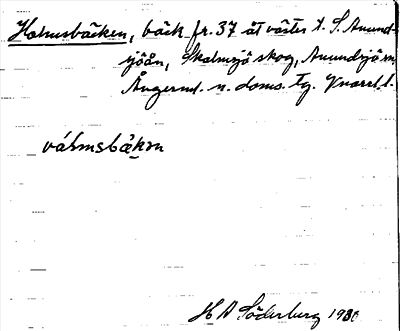 Holmsbäcken, bäck fr. 37 åt väster t. S. Anund-
sjöån, Skalmsjö skog, Anundsjö sn,
Ångerml. n. doms. tg.
bäkən
H A Söderberg 1930